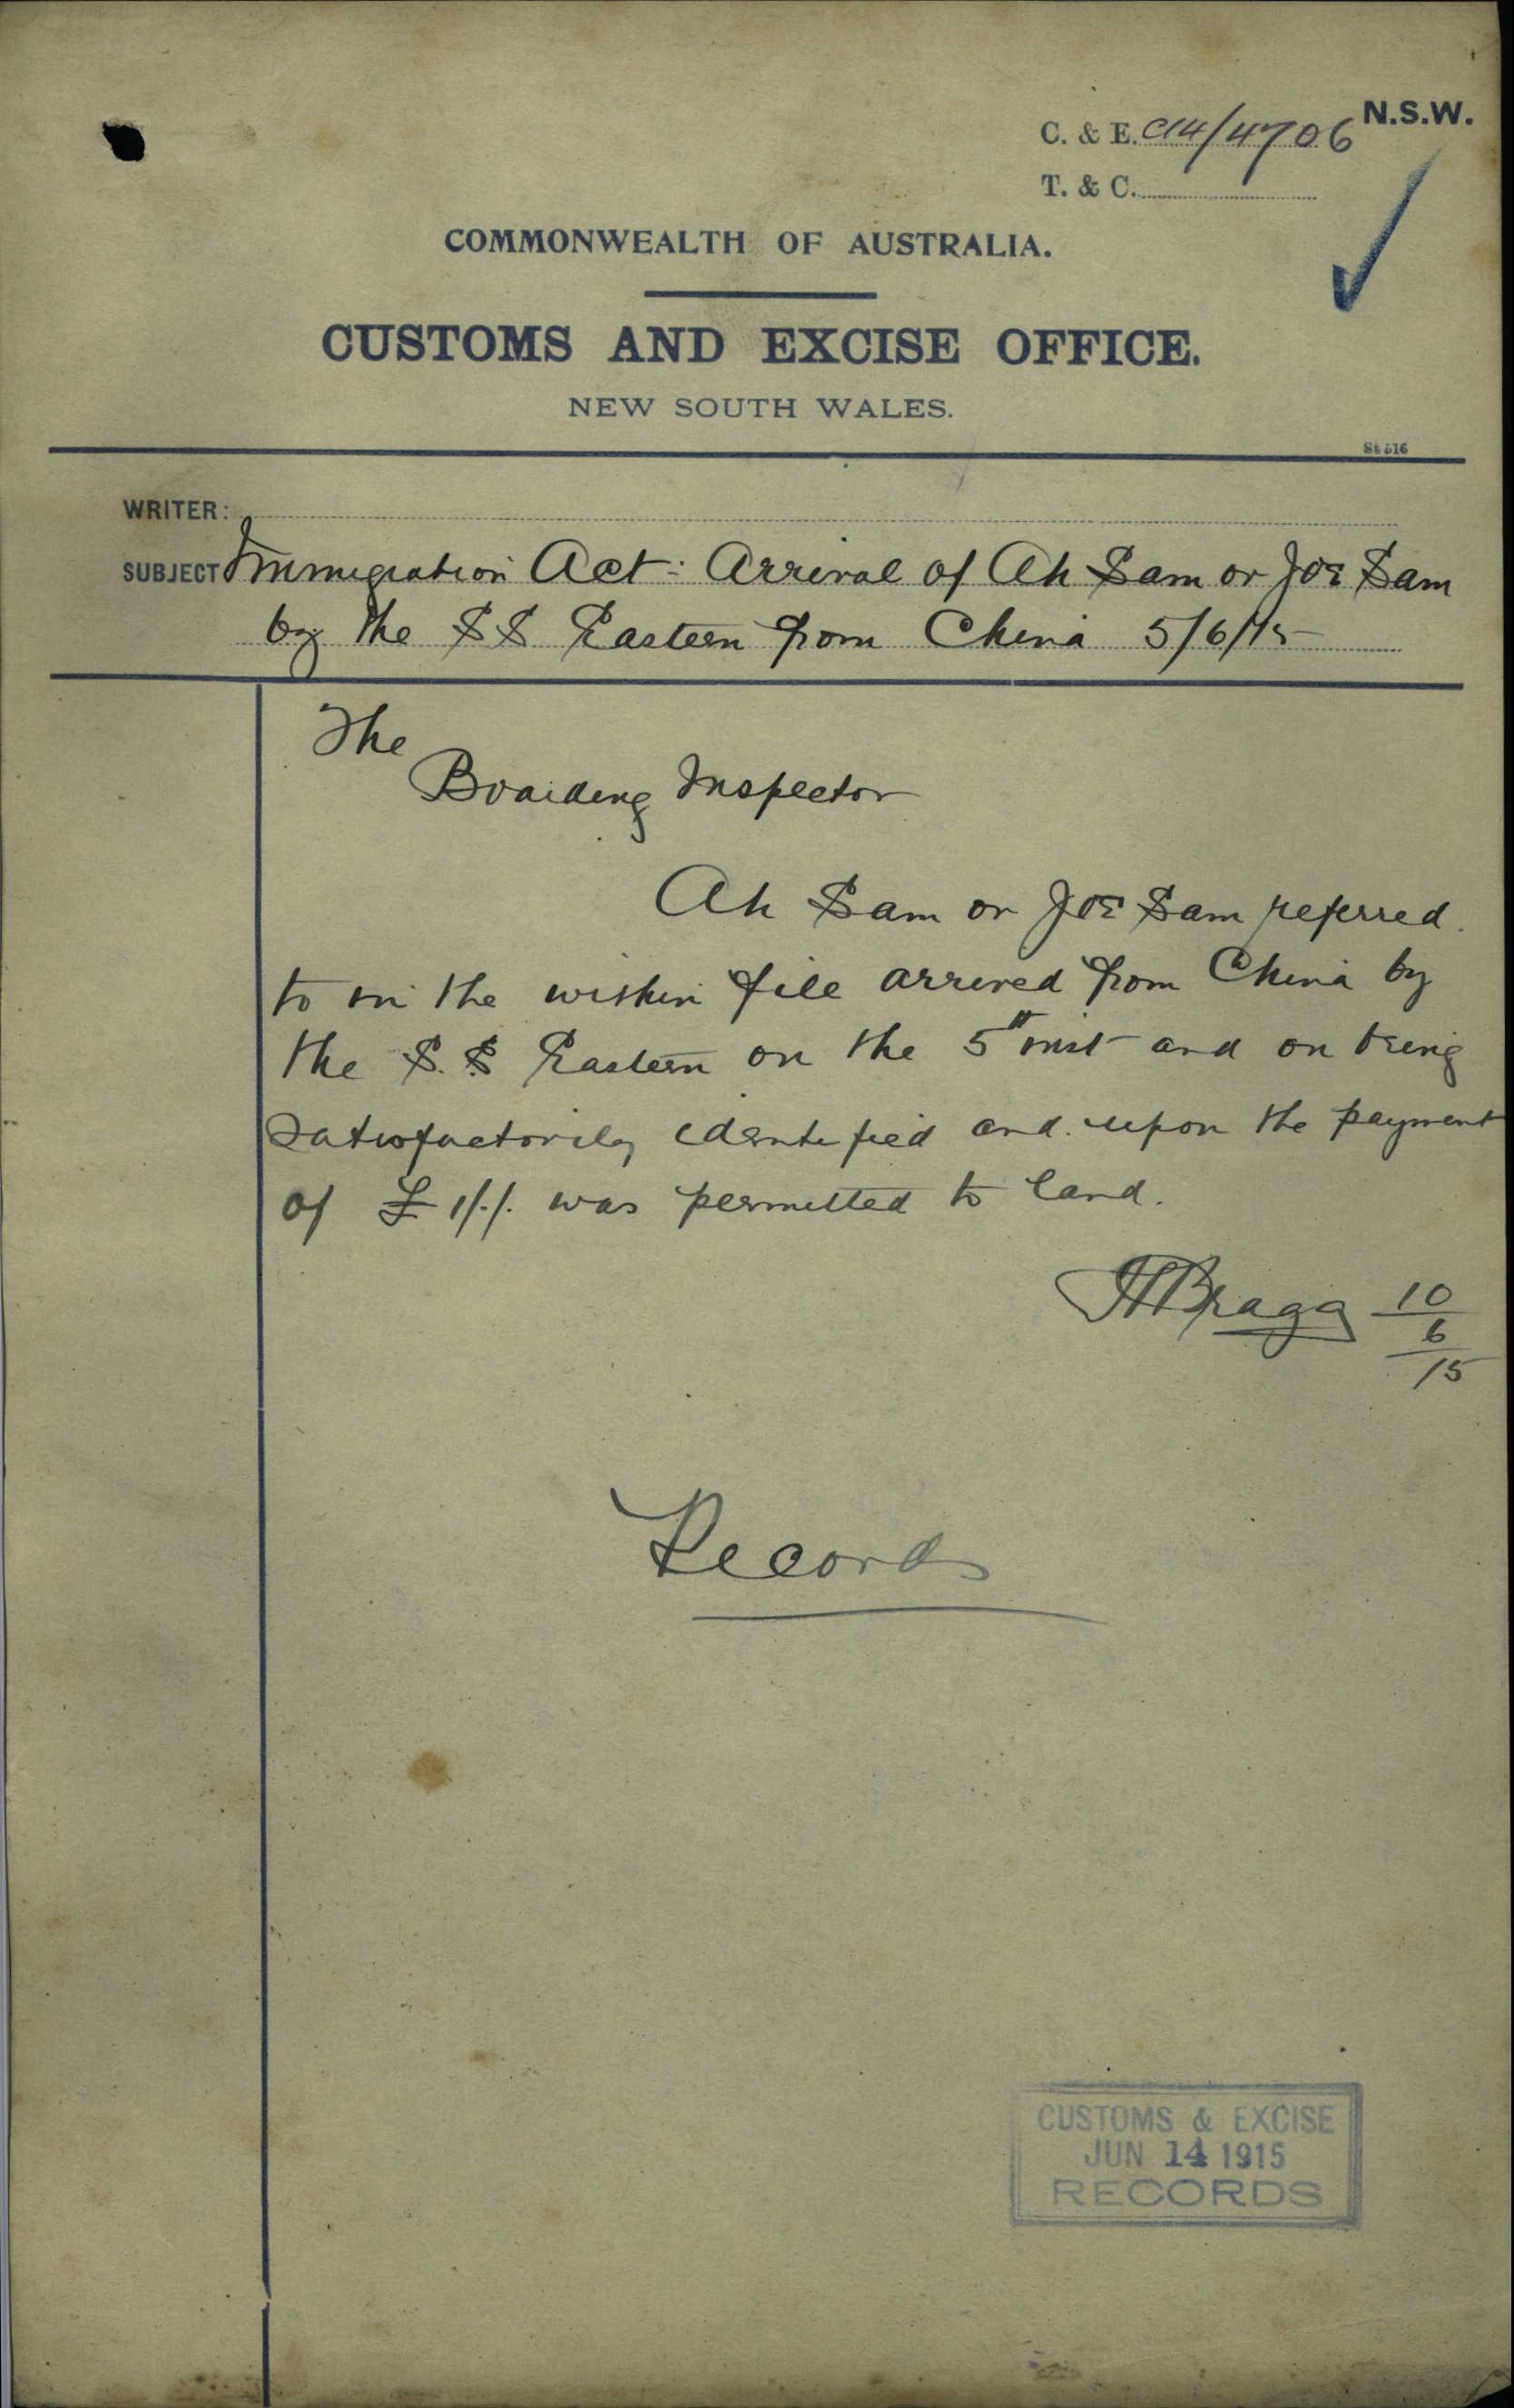 N.S.W.
C. & E. C14/4706
T. & C.
COMMONWEALTH OF AUSTRALIA.
CUSTOMS AND EXCISE OFFICE.
NEW SOUTH WALES.
WRITER:
SUBJECT Immigration Act: Arrival of Ah Sam or Joe Sam
by the SS Eastern from China 5/6/15
The
Boarding Inspector
Ah Sam or Joe Sam referred
to in the within file arrived from China by
the S.S Eastern on the 5th inst and on being
satisfactorily identified and upon the payment
of £1/-/- was permitted to land.
Bragg 10
6
15
Records
CUSTOMS & EXCISE
JUN 14 1915
RECORDS